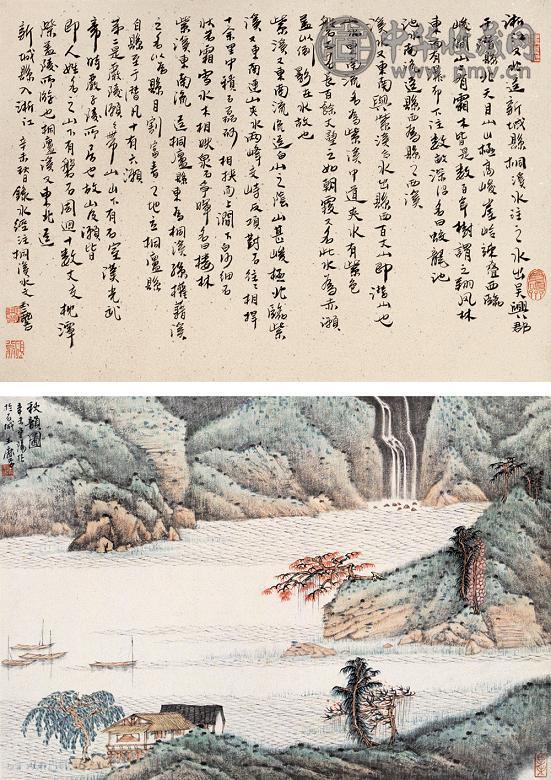 浙江又北逕新城縣桐溪水注之水出吳興郡
于潛縣北天目山山極高峻崖嶺竦疊西臨
峻澗山上有霜木皆是數百年樹謂之翔鳳林
東面有瀑布下注數畝深沼名曰蛟龍池
池水南流逕縣西為縣之西溪
溪水又東南與紫溪合水出縣西百丈山即潛山也
山水東南流名為紫溪中道夾水有紫色
磐石石長百餘丈望之如朝霞又名此水為赤瀨
蓋以倒影在水故也
紫溪又東南流逕白石山之陰山甚峻極北臨紫
溪又東南連山夾水兩峰交峙反項對石往往相捍
十餘里中積石磊砢相挾而上澗下白沙細石
狀若霜雪水木相映泉石爭暉名曰樓林
紫溪東南流逕桐廬縣東為桐溪孫權藉溪
之名以為縣目割富春之地立桐廬縣
自縣至于潛凡十有六瀨
第二是嚴陵瀨瀨帶山山下有石室漢光武
帝時嚴子陵之所居也故山及瀨皆
即人姓名之山下有磐石周迴十數丈交枕潭
際蓋陵所遊也桐溪又東北逕
新城縣入浙江 辛未秋錄水經注桐溪水文
中华收藏网
秋韻圖